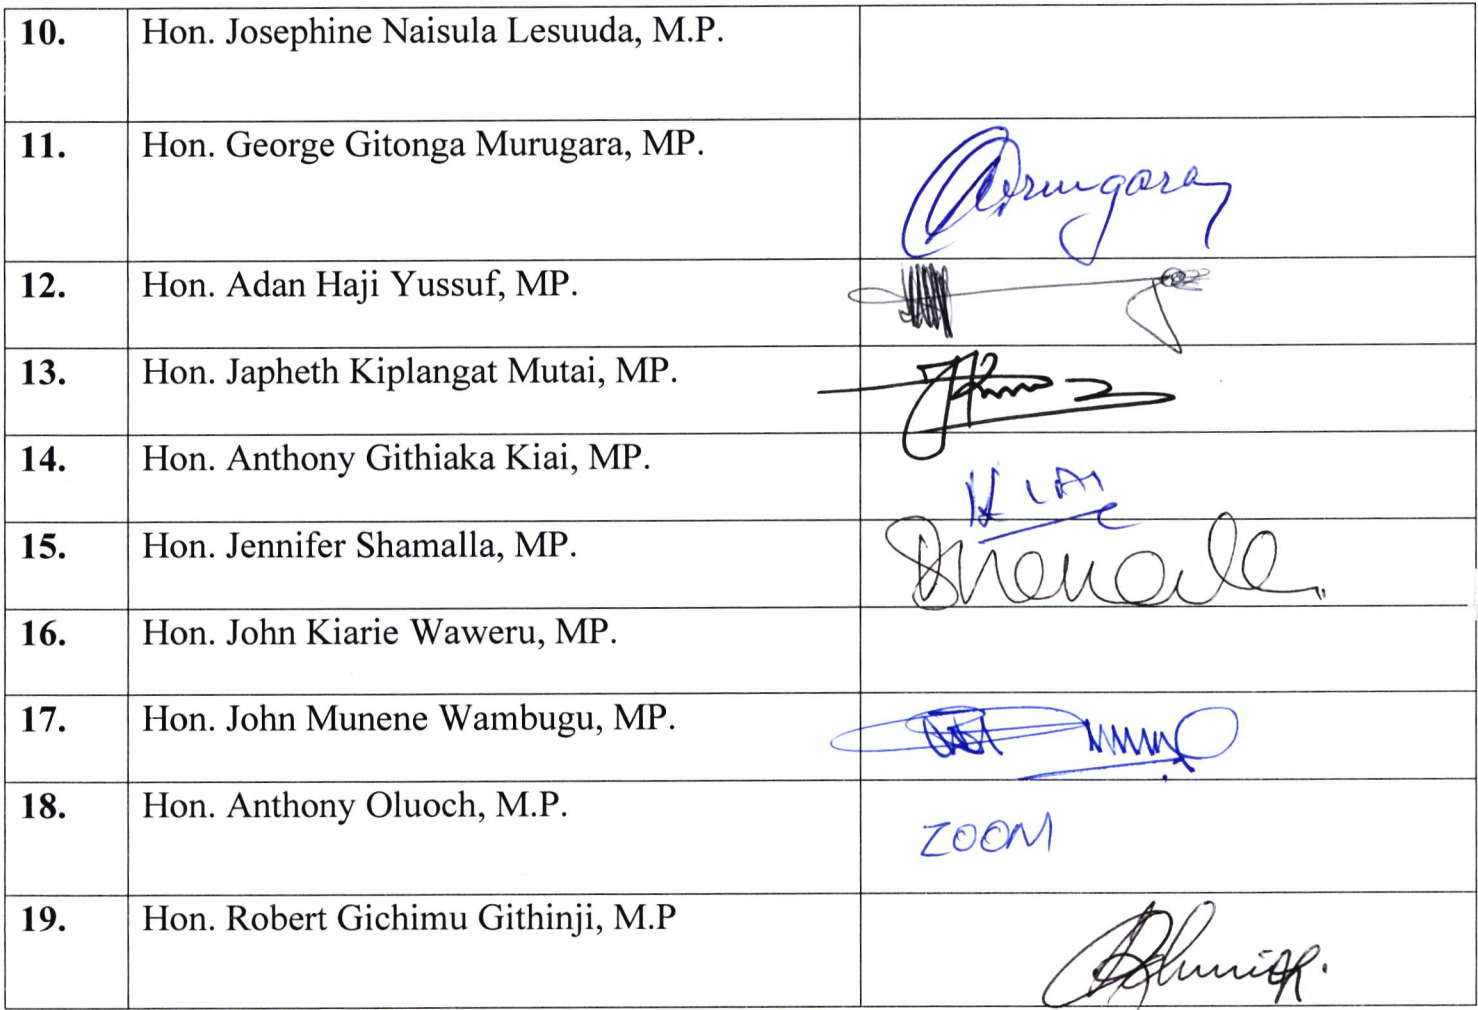 10. Hon. Josephine Naisula Lesuuda, M.P.
11. Hon. George Gitonga Murugara, MP.
12. Hon. Adan Haji Yussuf, MP.
13. Hon. Japheth Kiplangat Mutai, MP.
14. Hon. Anthony Githiaka Kiai, MP. KIAI
15. Hon. Jennifer Shamalla, MP.
16. Hon. John Kiarie Waweru, MP.
17. Hon. John Munene Wambugu, MP.
18. Hon. Anthony Oluoch, M.P. ZOOM
19. Hon. Robert Gichimu Githinji, M.P